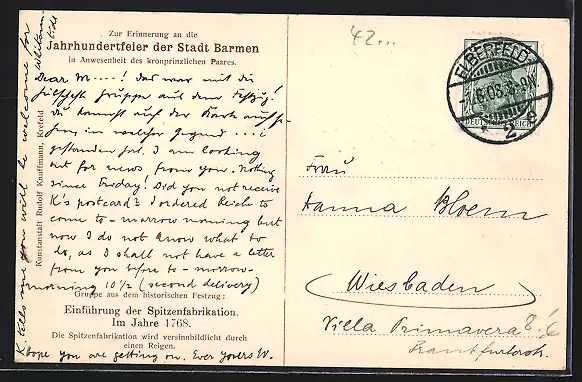 Zur Erinnerung an die
Jahrhundertfeier der Stadt Barmen
in Anwesenheit des kronprinzlichen Paares.
Dear M....! Das war mit die
Gruppe aus dem Festzug!
Du kannst auf der Karte
in welcher Gegend ...i
gestanden hat. I am looking
out for news from you. Nothing
since Friday! Did you not receive
K's postcard? I ordered Reichs to
come to-morrow morning but
now I do not know what to
do, as I shall not have a letter
from you before to-morrow-
morning 10 1/2 (second delivery)
Gruppe aus dem historischen Festzug:
Einführung der Spitzenfabrikation.
Im Jahre 1768.
Die Spitzenfabrikation wird versinnbildlicht durch
einen Reigen.
Hope you are getting on. Ever yours W.
K. tells me you will be welcome for
Kunstanstalt Rudolf Kauffmann, Krefeld
42...
ELBERFELD
6.08.8-9N
2
DEUTSCHES REICH
Frau
Hanna Bloem
Wiesbaden
Villa Primavera 8.
Frankfurterstr.